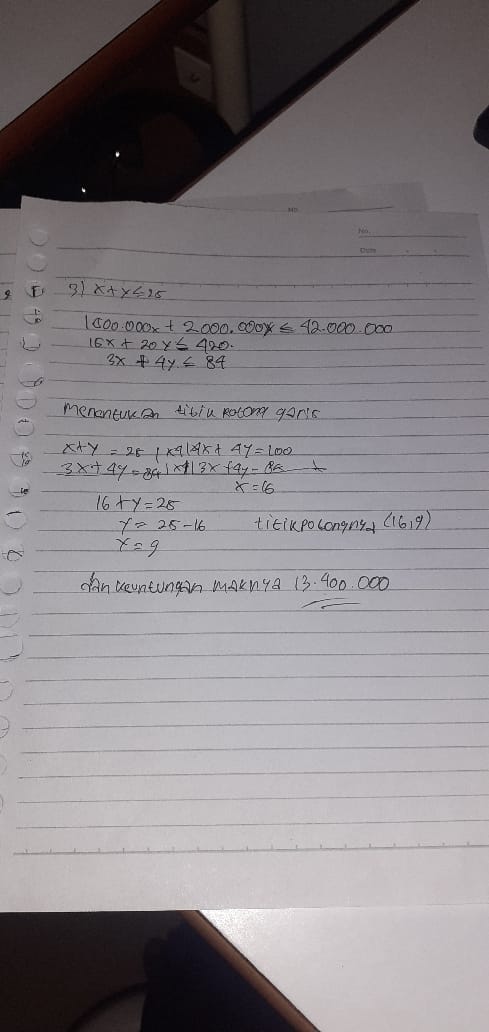 No.
No.
Date
3) x+y≤25
1500.000x + 2000.000y ≤ 42.000.000
15x + 20y ≤ 420.
3x + 4y ≤ 84
menentukan titik potong garis
x+y = 25 | x4 | 4x + 4y = 100
3x+4y = 84 | x1 | 3x + 4y = 84
x = 16
16 + y = 25
y = 25 - 16 titik potongnya (16,9)
y = 9
dan keuntungan maknya 13.400.000